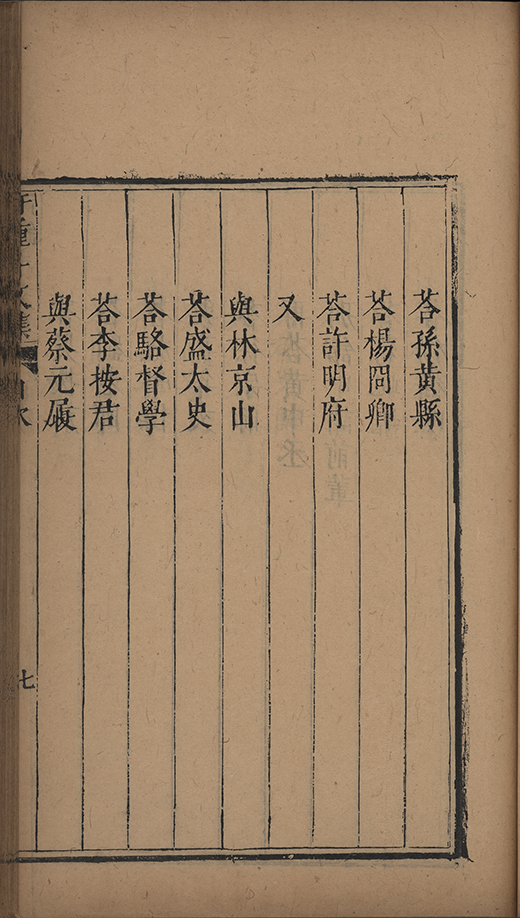 荅孫黄縣
荅楊冏卿
荅許明府
又
與林京山
荅盛太史
荅駱督學
荅李按君
與蔡元履
七